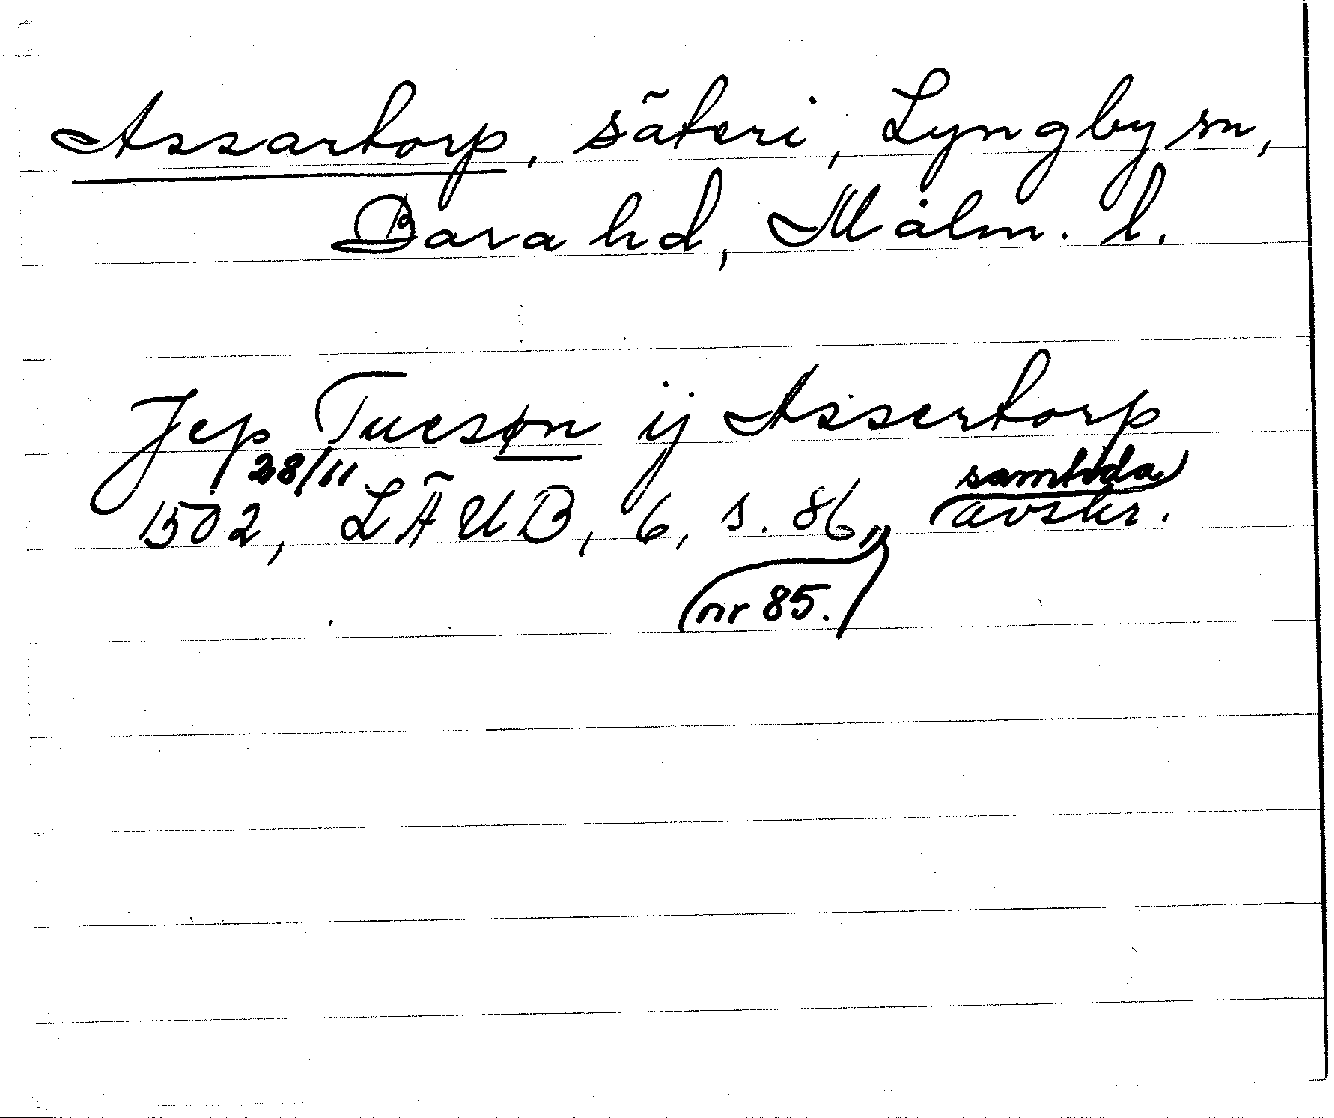 Assartorp, säteri, Lyngby sn,
Bara hd, Malm. l.
Jep Tuesøn ij Assertorp
28/11
1502, LÄUB, 6, s. 86, samtida avskr.
nr 85.